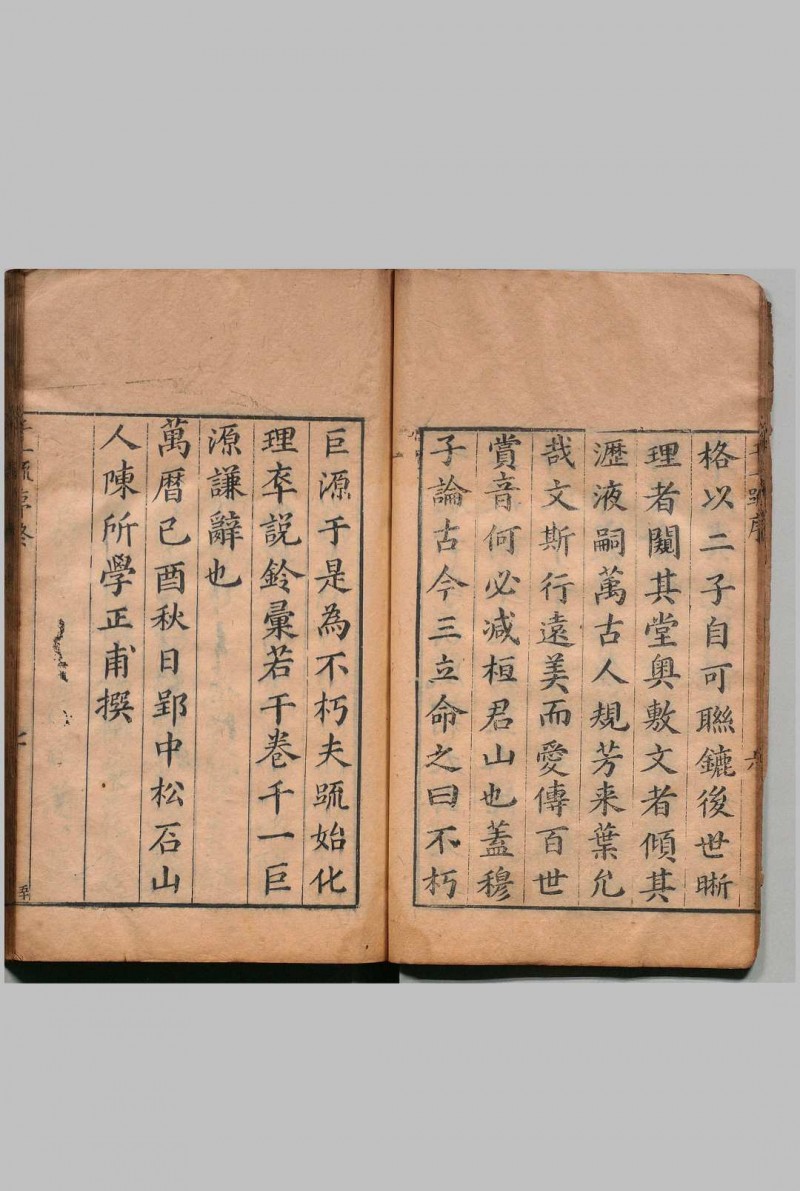 格以二子自可聯鑣後世晣
理者闚其堂奧敷文者傾其
瀝液嗣萬古人規芳来葉允
哉文斯行遠美而愛傳百世
賞音何必減桓君山也蓋穆
子論古今三立命之曰不朽
六
巨源于是為不朽夫䟽始化
理卒説鈴彙若干卷千一巨
源謙辭也
萬曆己酉秋日郢中松石山
人陳所學正甫撰